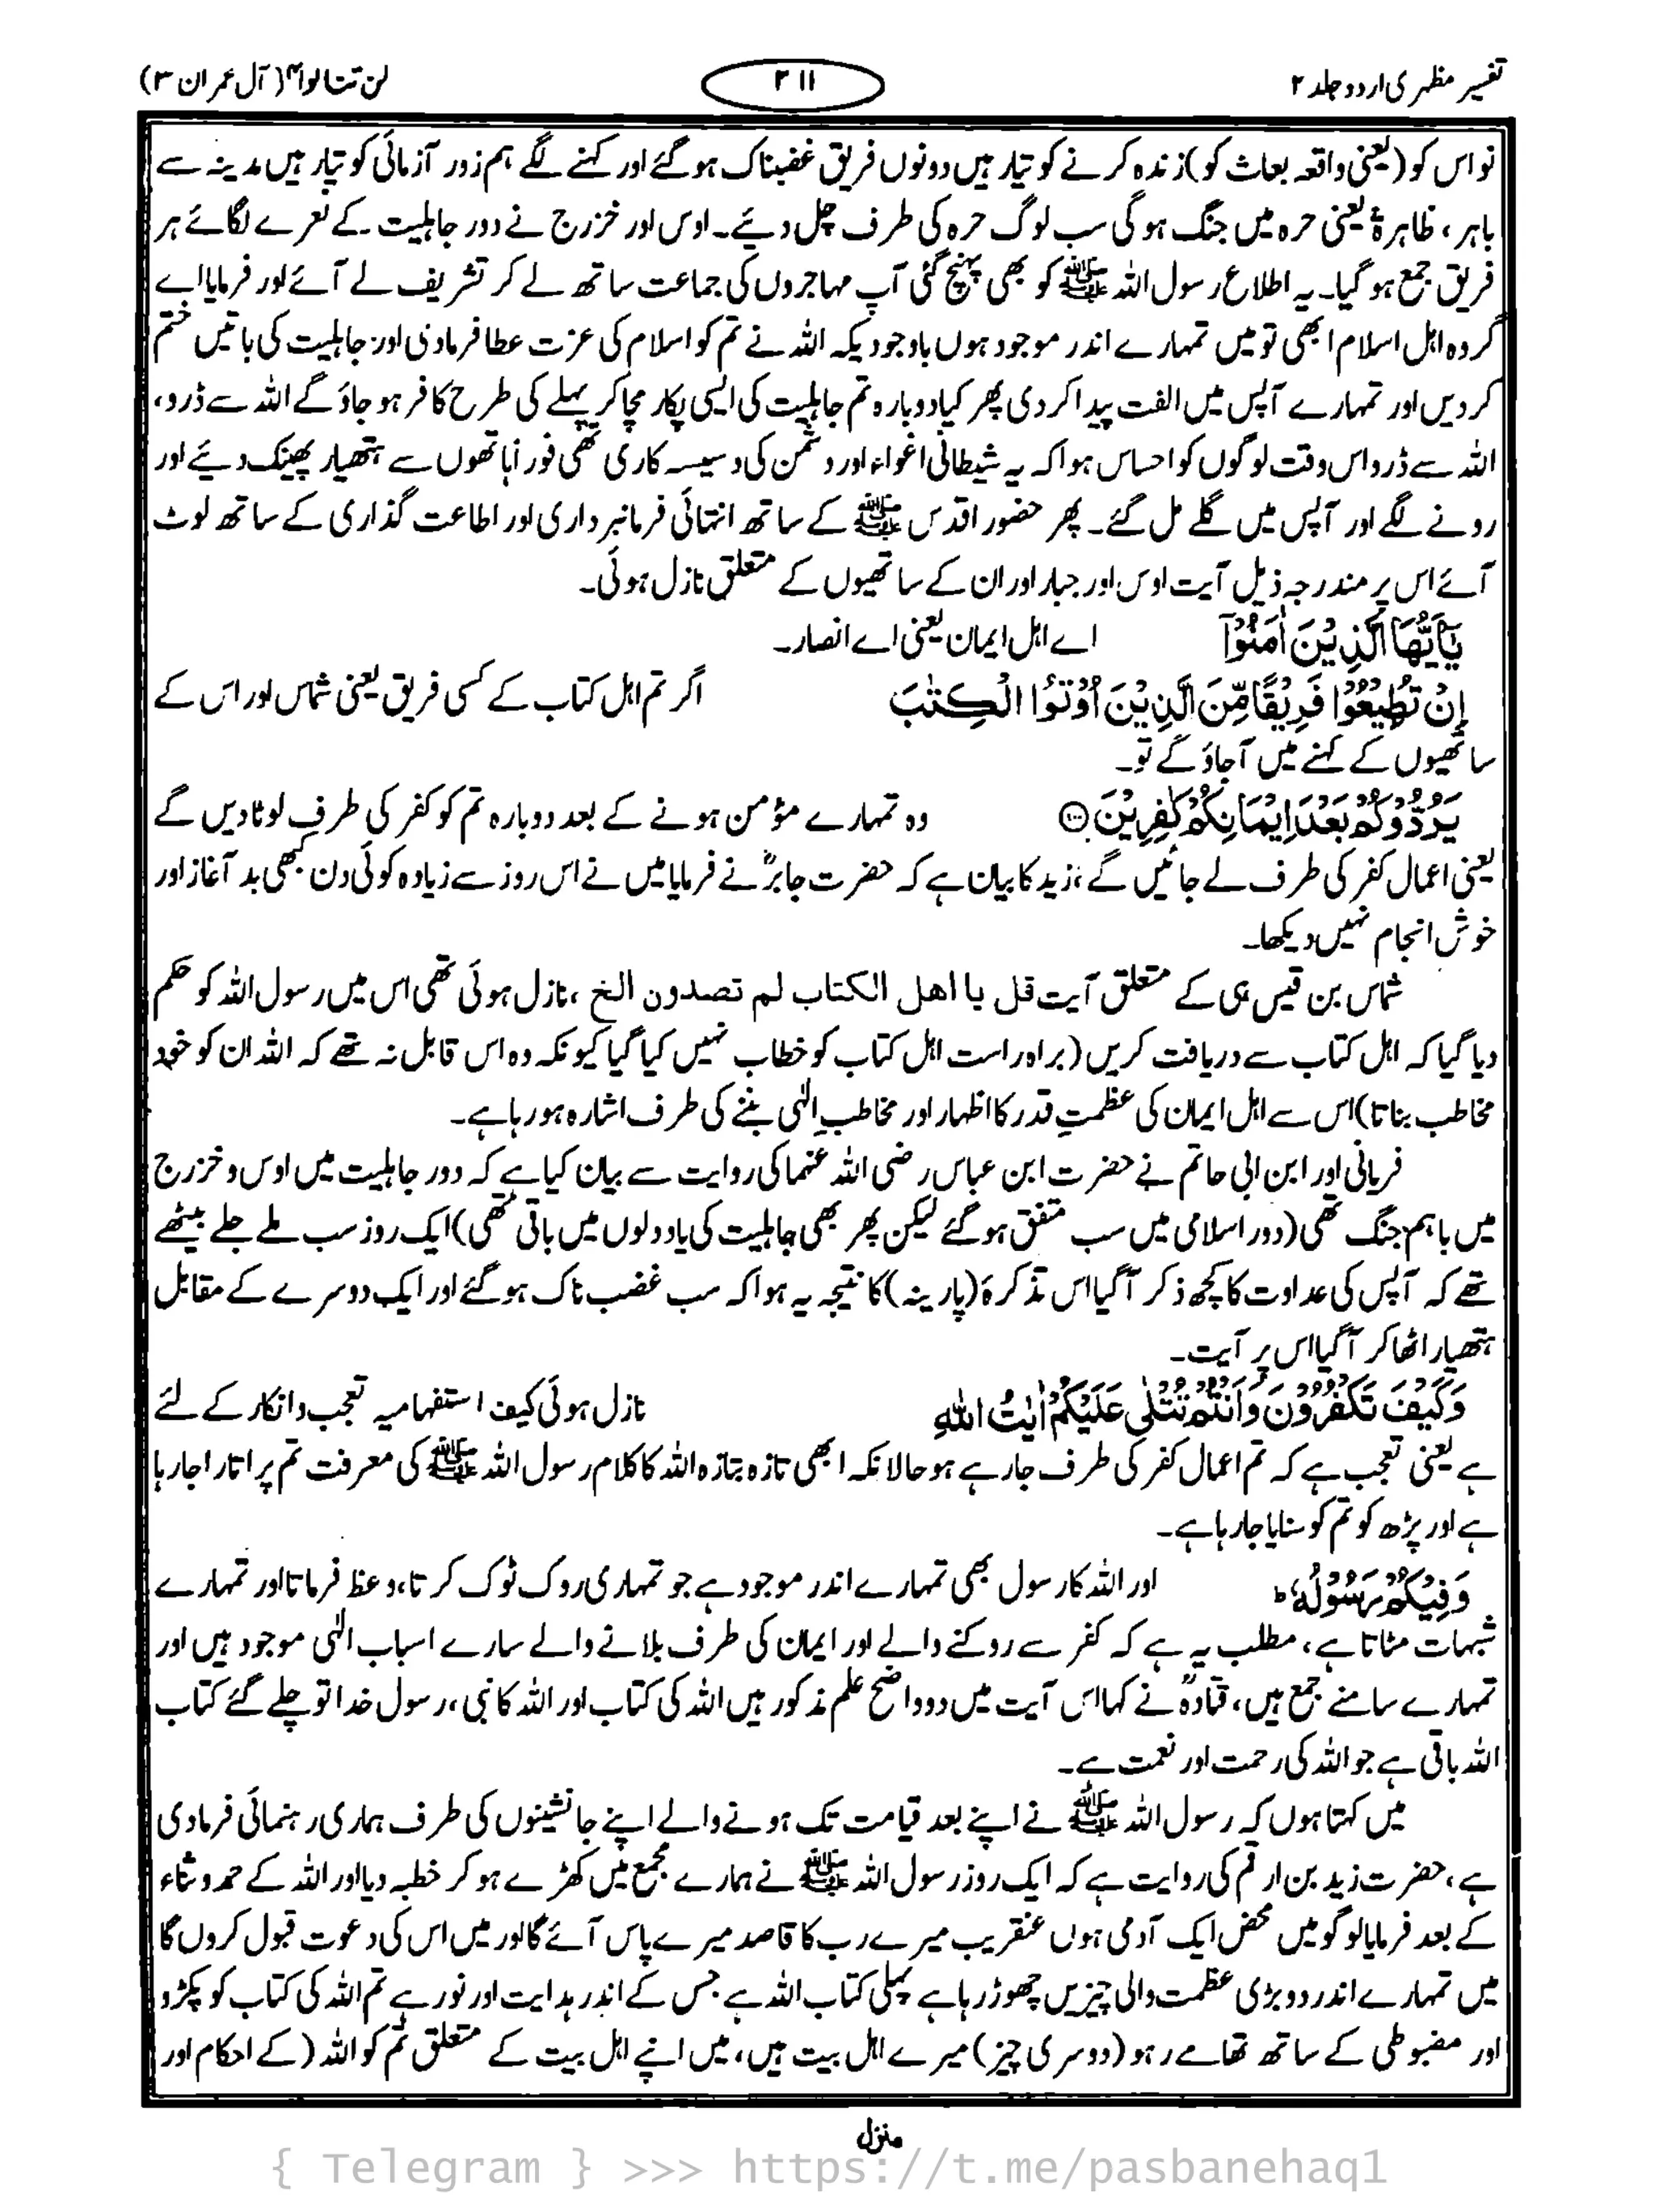 تفسیر مظہری اردو جلد ۲
۲۱۱
لن تنالوا۴ (آل عمران ۳)
تو اس کو (یعنی واقعہ بعاث کو) زندہ کرنے کو تیار ہیں دونوں فریق غضبناک ہو گئے اور کہنے لگے ہم زور آزمائی کو تیار ہیں مدینہ سے
باہر، ظاہرۃ یعنی حرہ میں جنگ ہو گی سب لوگ حرہ کی طرف چل دیئے۔ اوس اور خزرج نے دور جاہلیت کے نعرے لگائے ہر
فریق جمع ہو گیا۔ یہ اطلاع رسول اللہ ﷺ کو بھی پہنچ گئی آپ مہاجروں کی جماعت ساتھ لے کر تشریف لے آئے اور فرمایا اے
گروہ اہل اسلام ابھی تو میں تمہارے اندر موجود ہوں باوجودیکہ اللہ نے تم کو اسلام کی عزت عطا فرمادی اور جاہلیت کی باتیں ختم
کر دیں اور تمہارے آپس میں الفت پیدا کر دی پھر کیا دوبارہ تم جاہلیت کی ایسی پکار مچا کر پہلے کی طرح کافر ہو جاؤ گے اللہ سے ڈرو،
اللہ سے ڈرو اس وقت لوگوں کو احساس ہوا کہ یہ شیطانی اغواء اور دشمن کی دسیسہ کاری تھی فوراً ہاتھوں سے ہتھیار پھینک دیئے اور
رونے لگے اور آپس میں گلے مل گئے۔ پھر حضور اقدس ﷺ کے ساتھ انتہائی فرمانبرداری اور اطاعت گذاری کے ساتھ لوٹ
آئے اس پر مندرجہ ذیل آیت اوس اور جبار اور ان کے ساتھیوں کے متعلق نازل ہوئی۔
يٰۤاَيُّهَا الَّذِيْنَ اٰمَنُوْۤا اے اہل ایمان یعنی اے انصار۔
اِنْ تُطِيْعُوْا فَرِيْقًا مِّنَ الَّذِيْنَ اُوْتُوا الْكِتٰبَ اگر تم اہل کتاب کے کسی فریق یعنی شماس اور اس کے
ساتھیوں کے کہنے میں آجاؤ گے تو۔
يَرُدُّوْكُمْ بَعْدَ اِيْمَانِكُمْ كٰفِرِيْنَ ۝۱۰۰ وہ تمہارے مؤمن ہونے کے بعد دوبارہ تم کو کفر کی طرف لوٹا دیں گے
یعنی اعمال کفر کی طرف لے جائیں گے، زید کا بیان ہے کہ حضرت جابرؓ نے فرمایا میں نے اس روز سے زیادہ کوئی دن کبھی بد آغاز اور
خوش انجام نہیں دیکھا۔
شماس بن قیس ہی کے متعلق آیت قل یا اھل الکتاب لم تصدون الخ ، نازل ہوئی تھی اس میں رسول اللہ کو حکم
دیا گیا کہ اہل کتاب سے دریافت کریں (براہ راست اہل کتاب کو خطاب نہیں کیا گیا کیونکہ وہ اس قابل نہ تھے کہ اللہ ان کو خود
مخاطب بناتا) اس سے اہل ایمان کی عظمتِ قدر کا اظہار اور مخاطبِ الٰہی بننے کی طرف اشارہ ہو رہا ہے۔
فریابی اور ابن ابی حاتم نے حضرت ابن عباس رضی اللہ عنہما کی روایت سے بیان کیا ہے کہ دور جاہلیت میں اوس و خزرج
میں باہم جنگ تھی (دور اسلامی میں سب متفق ہو گئے لیکن پھر بھی جاہلیت کی یاد دلوں میں باقی تھی) ایک روز سب ملے جلے بیٹھے
تھے کہ آپس کی عداوت کا کچھ ذکر آگیا اس تذکرۂ (پارینہ) کا نتیجہ یہ ہوا کہ سب غضب ناک ہو گئے اور ایک دوسرے کے مقابل
ہتھیار اٹھا کر آگیا اس پر آیت۔
وَكَيْفَ تَكْفُرُوْنَ وَاَنْتُمْ تُتْلٰى عَلَيْكُمْ اٰيٰتُ اللهِ نازل ہوئی کیف استفہامیہ تعجب وانکار کے لئے
ہے یعنی تعجب ہے کہ تم اعمال کفر کی طرف جا رہے ہو حالانکہ ابھی تازہ بتازہ اللہ کا کلام رسول اللہ ﷺ کی معرفت تم پر اتارا جا رہا
ہے اور پڑھ کو تم کو سنایا جا رہا ہے۔
وَفِيْكُمْ رَسُوْلُهٗ ؕ اور اللہ کا رسول بھی تمہارے اندر موجود ہے جو تمہاری روک ٹوک کرتا، وعظ فرماتا اور تمہارے
شبہات مٹاتا ہے، مطلب یہ ہے کہ کفر سے روکنے والے اور ایمان کی طرف بلانے والے سارے اسباب الٰہی موجود ہیں اور
تمہارے سامنے جمع ہیں، قتادہؒ نے کہا اس آیت میں دو واضح علم مذکور ہیں اللہ کی کتاب اور اللہ کا نبی، رسول خدا تو چلے گئے کتاب
اللہ باقی ہے جو اللہ کی رحمت اور نعمت ہے۔
میں کہتا ہوں کہ رسول اللہ ﷺ نے اپنے بعد قیامت تک ہونے والے اپنے جانشینوں کی طرف ہماری رہنمائی فرمادی
ہے، حضرت زید بن ارقم کی روایت ہے کہ ایک روز رسول اللہ ﷺ نے ہمارے مجمع میں کھڑے ہو کر خطبہ دیا اور اللہ کے حمد و ثناء
کے بعد فرمایا لوگو میں محض ایک آدمی ہوں عنقریب میرے رب کا قاصد میرے پاس آئے گا اور میں اس کی دعوت قبول کروں گا
میں تمہارے اندر دو بڑی عظمت والی چیزیں چھوڑ رہا ہے پہلی کتاب اللہ ہے جس کے اندر ہدایت اور نور ہے تم اللہ کی کتاب کو پکڑو
اور مضبوطی کے ساتھ تھامے رہو (دوسری چیز) میرے اہل بیت ہیں، میں اپنے اہل بیت کے متعلق تم کو اللہ (کے احکام اور
منزل
{ Telegram } >>> https://t.me/pasbanehaq1